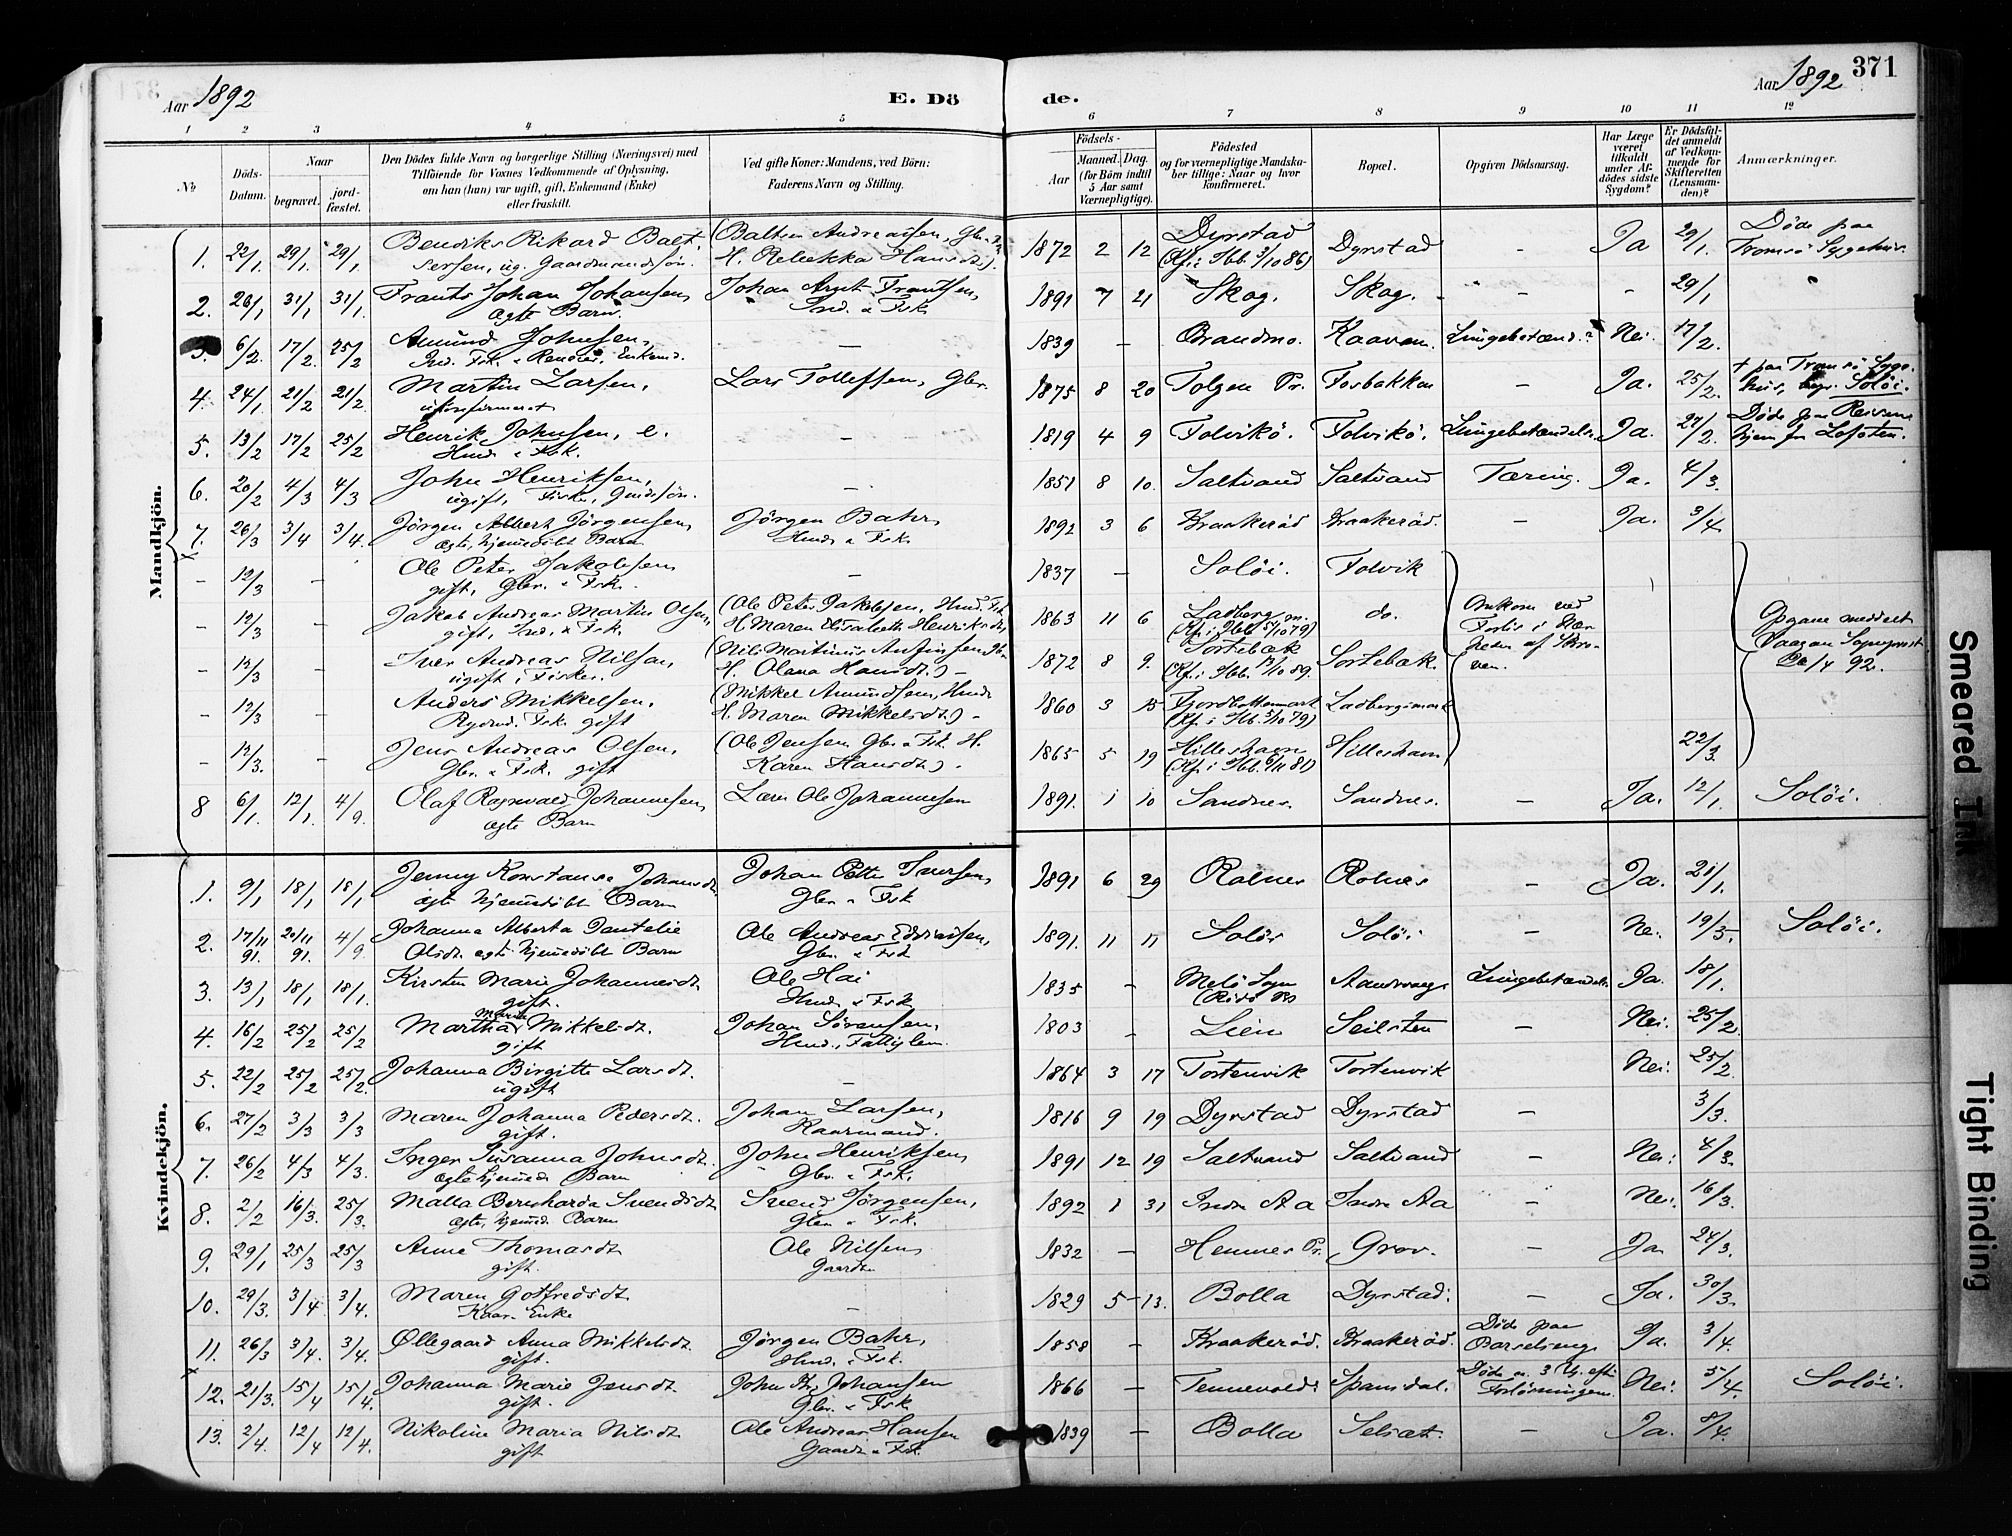 Aar 1892
E. Dö
de.
Aar 1892
371
1 2 3 4 5 6 7 8 9 10 11 12
No
Döds-
Datum.
Naar
begravet.
jord-
fæstet.
Den Dödes fulde Navn og borgerlige Stilling (Næringsvei) med
Tilföiende for Voxnes Vedkommende af Oplysning,
om han (hun) var ugift, gift, Enkemand (Enke)
eller fraskilt.
Ved gifte Koner: Mandens, ved Börn:
Faderens Navn og Stilling.
Födsels-
Aar
Maaned. Dag.
(for Börn indtil
5 Aar samt
Værnepligtige).
Födested
og for værnepligtige Mandska-
ber tillige: Naar og hvor
konfirmeret.
Bopæl.
Opgiven Dödsaarsag.
Har Læge
været
tilkaldt
under Af-
dödes sidste
Sygdom?
Er Dödsfal-
det anmeldt
af Vedkom-
mende for
Skifteretten
(Lensman-
den)?
Anmærkninger.
Mandkjön.
1. 22/1. 29/1. 29/1 Bendiks Rikard Balt- (Baltser Andreassen, Gbr. 1872 2 12 Dyrstad Dyrstad - Ja 29/1. Døde paa
sersen, ug. Gaardmandssøn. H. Rebekka Hansdt.). (Kf. i Ibb. 3/10 86) Tromsö Sygehus.
2. 26/1 31/1 31/1. Frants Johan Johansen, Johan Arnt Frantsen, 1891 7 21 Skog. Skog. - - 29/1
ægte Barn. Ind. & Fsk.
3. 6/2. 17/2. 25/2 Amund Johnsen, - 1839 - Brandmo. Kaaven. Lungebetænd.? Nei. 17/2.
Ind. Fsk. & Enkemd.
4. 24/1 21/2 21/2. Martin Larsen, Lars Tollefsen, Gbr. 1875 8 20 Tolgen Pr. Fosbakken - Ja. 25/2. † paa Tromsö Syge-
ukonfirmeret hus, begr. Soløi.
5. 13/2 17/2 25/2 Henrik Johnsen, e. - 1819 4 9 Folvikö. Folvikö. Lungebetændelse Ja. 27/2. Døde paa Reisen
Husmd. & Fsk. hjem fra Lofoten.
6. 20/2 4/3 4/3 John Henriksen, - 1851 8 10. Saltvand Saltvand Tæring. Ja. 4/3.
ugift, Fisker, Gaardssøn.
7. 26/3 3/4 3/4. Jørgen Albert Jørgensen, Jørgen Bahr, 1892 3 6 Kraakerød Kraakerød. - Ja. 3/4.
ægte, hjemmedöbt Barn Husmd. & Fsk.
- 12/3 - Ole Peter Jakobsen, - 1837 - Soløi. Folvik
gift, Gbr. & Fsk.
- 12/3 - Jakob Andreas Martin Olsen, (Ole Peter Jakobsen, Husmd. Fsk 1863 11 6 Ladberg m. do. Omkom ved
gift, Ind. & Fsk. H. Maren Elisabeth Henriksdt.) (Kf. i Ibb. 5/10 79) Forlis i Nær-
- 13/3 - Iver Andreas Nilsen, (Nils Martinus Anfinsen, Gbr. 1872 8 9. Sortebak Sortebak. heden af Skro-
ugift, Fisker. H. Olena Hansdt.) - (Kf. i Ibb. 13/10 89. ven.
Opgave meddelt
Vaagan Sogneprest
20/4 92.
- 12/3 - Anders Mikkelsen, (Mikkel Amundsen, Husmd. 1860 3 15 Fjordbotnmark Ladbergsmark
Fsk. gift H. Maren Mikkelsdt.) - (Kf. i Ibb. 5/10 79)
- 13/3. - Jens Andreas Olsen, (Ole Jensen Gbr. & Fsk. H. 1865 5 19 Hilleshavn Hilleshavn 22/3.
Gbr. & Fsk. gift Karen Hansdt.) - (Kf. i Ibb. 9/11 81)
8 6/1. 12/1. 4/9. Olaf Ragnvald Johannesen, Lærer Ole Johannesen 1891. 1 10 Sandnes. Sandnes. - Ja. 12/1. Soløi.
ægte Barn
Kvindekjön.
1. 9/1 18/1 18/1 Jenny Konstanse Johansdt. Johan Petter Iversen, 1891 6 29 Rolnes Rolnes - Ja. 21/1.
ægte hjemmedöbt Barn Gbr. & Fsk
2. 17/11 91. 20/11 91. 4/9 Johanna Alberta Dantelie Ole Andreas Edvardsen, 1891. 11 11 Soløi Soløi - Nei 19/5. Soløi.
Olsdt. ægte hjemmedöbt Barn Gbr. & Fsk
3. 13/1 18/1 18/1. Kirsten Marie Johannesdt. Ole Hai 1835 - Melö Sogn Aandsvaag. Lungebetændelse Ja. 18/1.
gift. Husmd. & Fsk (Rödö Pr)
4. 16/2 25/2 25/2 Martha Maria Mikkelsdt. Johan Sørensen, 1803 - Lien Seilsten - Nei. 25/2.
gift Husmd., Fattiglem.
5. 22/2 25/2 25/2. Johanna Birgitte Larsdt. - 1864 3 17 Tostenvik Tostenvik Nei. 25/2.
ugift
6. 27/2 3/3 3/3 Maren Johanna Pedersdt. Johan Larsen, 1816 9 19 Dyrstad Dyrstad - 3/3.
gift. Kaarmand.
7. 26/2 4/3 4/3. Inger Susanna Johnsdt. John Henriksen, 1891 12 19 Saltvand Saltvand - Nei. 4/3.
ægte hjemmed. Barn Gbr. & Fsk.
8. 2/2 16/3. 25/3. Malla Bernharda Svendsdt. Svend Jørgensen, 1892 1 31 Indre Aa Indre Aa - Nei. 16/3.
ægte, hjemmed. Barn Gbr. & Fsk.
9. 29/1 25/3 25/3 Anne Thomasdt. Ole Nilsen, 1832 - Hemnes Pr. Grov. - Ja 24/3.
gift. Gaardm
10. 29/3. 3/4 3/4. Maren Gotfredsdt. - 1829 5 13. Bolla Dyrstad. - Ja. 30/3.
Kaar-Enke
11. 26/3 3/4. 3/4. Øllegaard Anna Mikkelsdt. Jørgen Bahr, 1858 - Kraakerød. Kraakerød. Døde paa Ja. 3/4.
gift. Husmd. & Fsk. Barselseng
12. 21/3. 15/4 15/4. Johanna Marie Jensdt. John Johansen 1866 - Tennevold. Spansdal. Døde ca. 3 U. efter Nei. 5/4. Soløi.
gift. Gbr. & Fsk. Forløsningen.
13. 2/4. 12/4 12/4. Nikoline Maria Nilsdt. Ole Andreas Hansen 1839 - Bolla Selsæt. - Ja. 8/4.
gift Gaardm. & Fsk.
Smeared Ink
Tight Binding